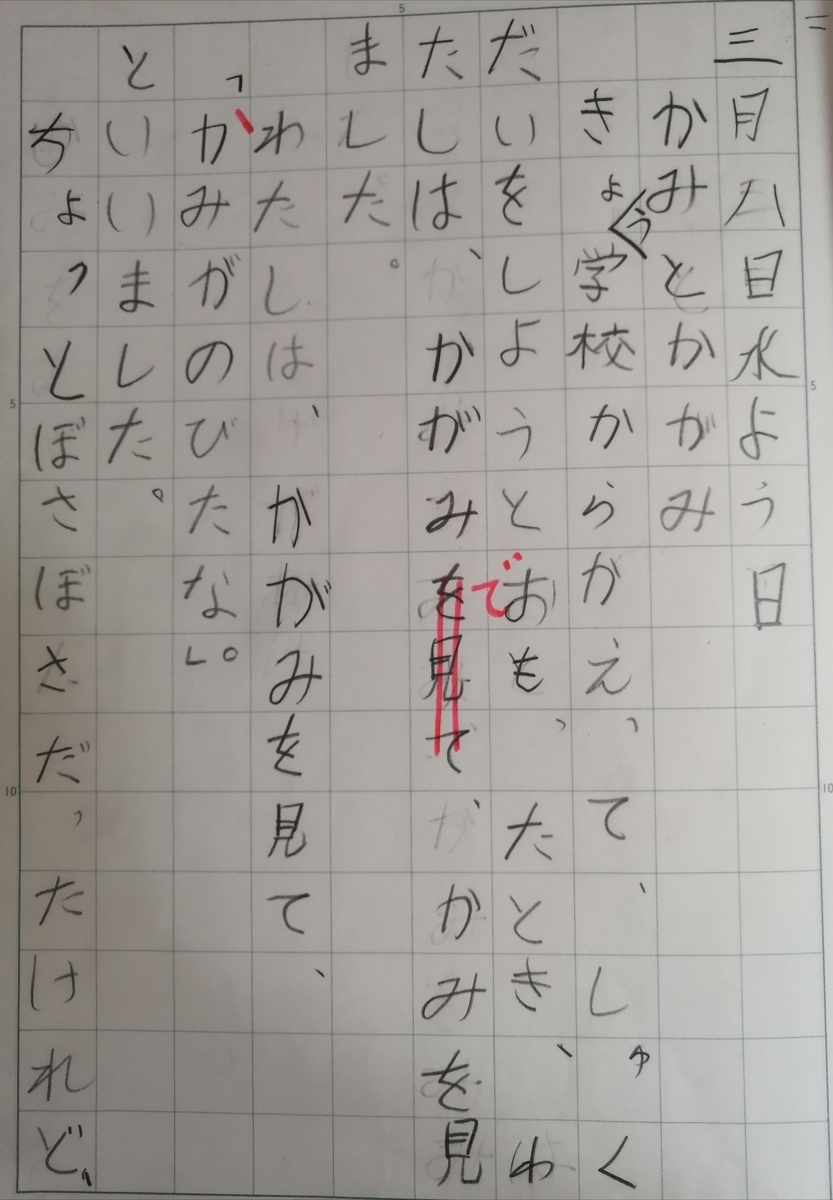 三月八日水よう日
かみとかがみ
きょう学校からかえって、しゅく
だいをしようとおもったとき、わ
で
たしは、かがみを見て、かみを見
ました。
わたしは、かがみを見て、
「かみがのびたな。」
といいました。
ちょっとぼさぼさだったけれど、
5
5
5
10
10